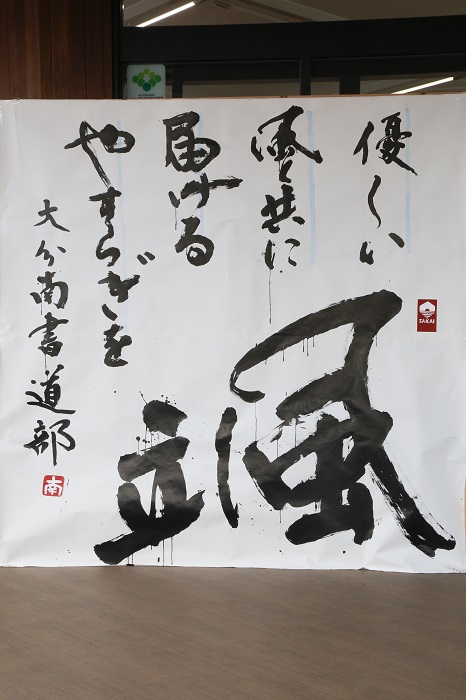 優しい
風と共に
届ける
やすらぎを
颯
大分南書道部
南
SAKAI